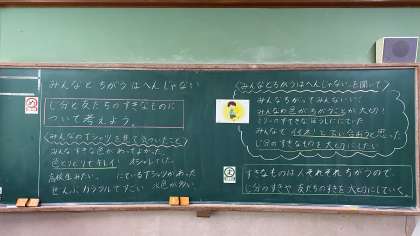 みんなとちがうはへんじゃない
じ分と友だちのすきなものに
ついて考えよう。
みんなのTシャツを見て気づいたこと
みんなすきな色があってよかった。
色とりどりでキレイ! オシャレでした。
高校生みたい。 にているTシャツがあった
ぜんぶカラフルですごい 水色が多い
みんなとちがうはへんじゃないを聞いて
みんなちがってみんないい
みんなの色がちがうことが大切!
とてもすてきなはっしんでした
みんなで イイネ! と言い合おうと思った
じ分のすきなものを大切にしたい
すきなものは人それぞれちがうので、
じ分のすきや 友だちのすきを大切にしていく